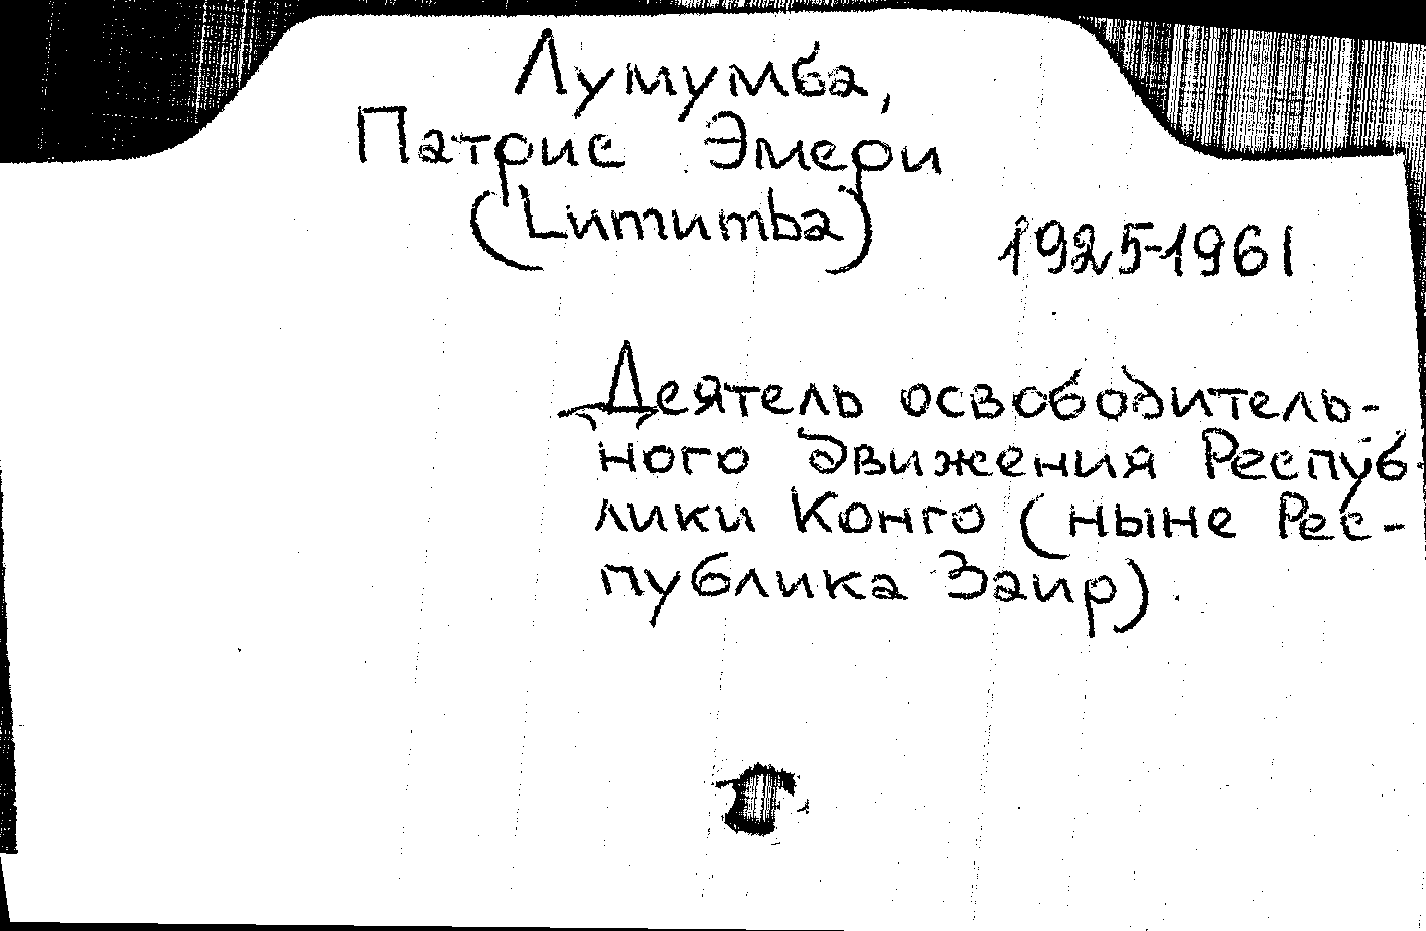 Лумумба,
Патрис Эмери
(Lumumba)
1925-1961
Деятель освободитель-
ного движения Респуб-
лики Конго (ныне Рес-
публика Заир).